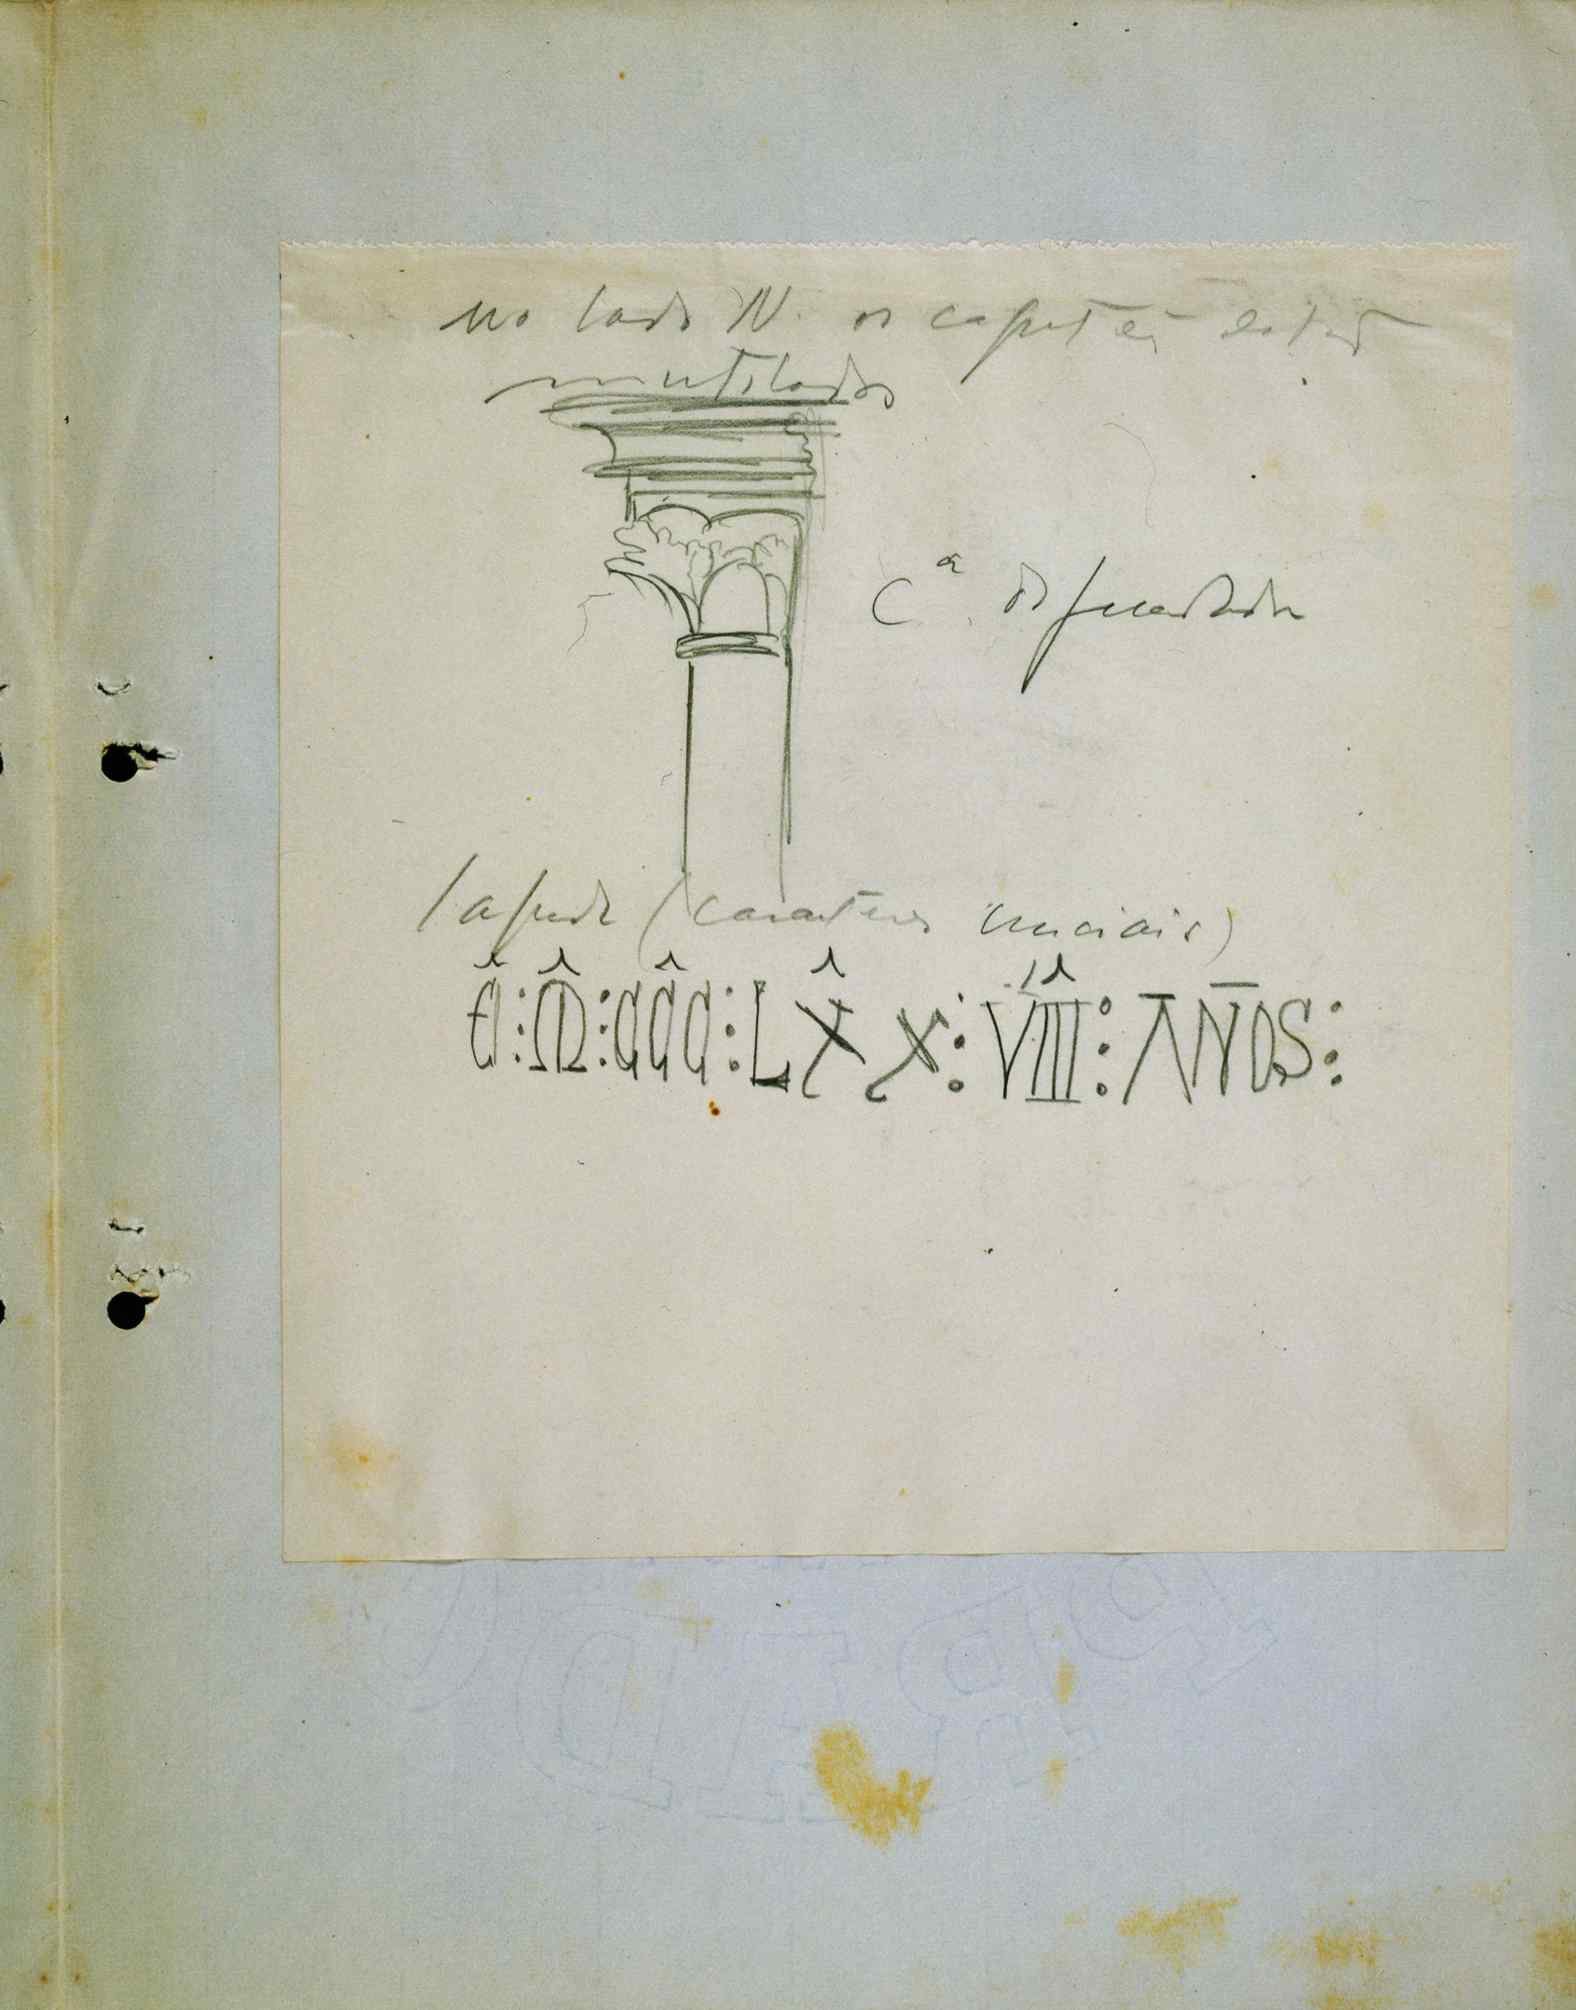 no lado N. os capiteis estão
mutilados
Cª de
lapide (caracteres unciais)
E : M : CCC : L X X : VIII : ANOS :